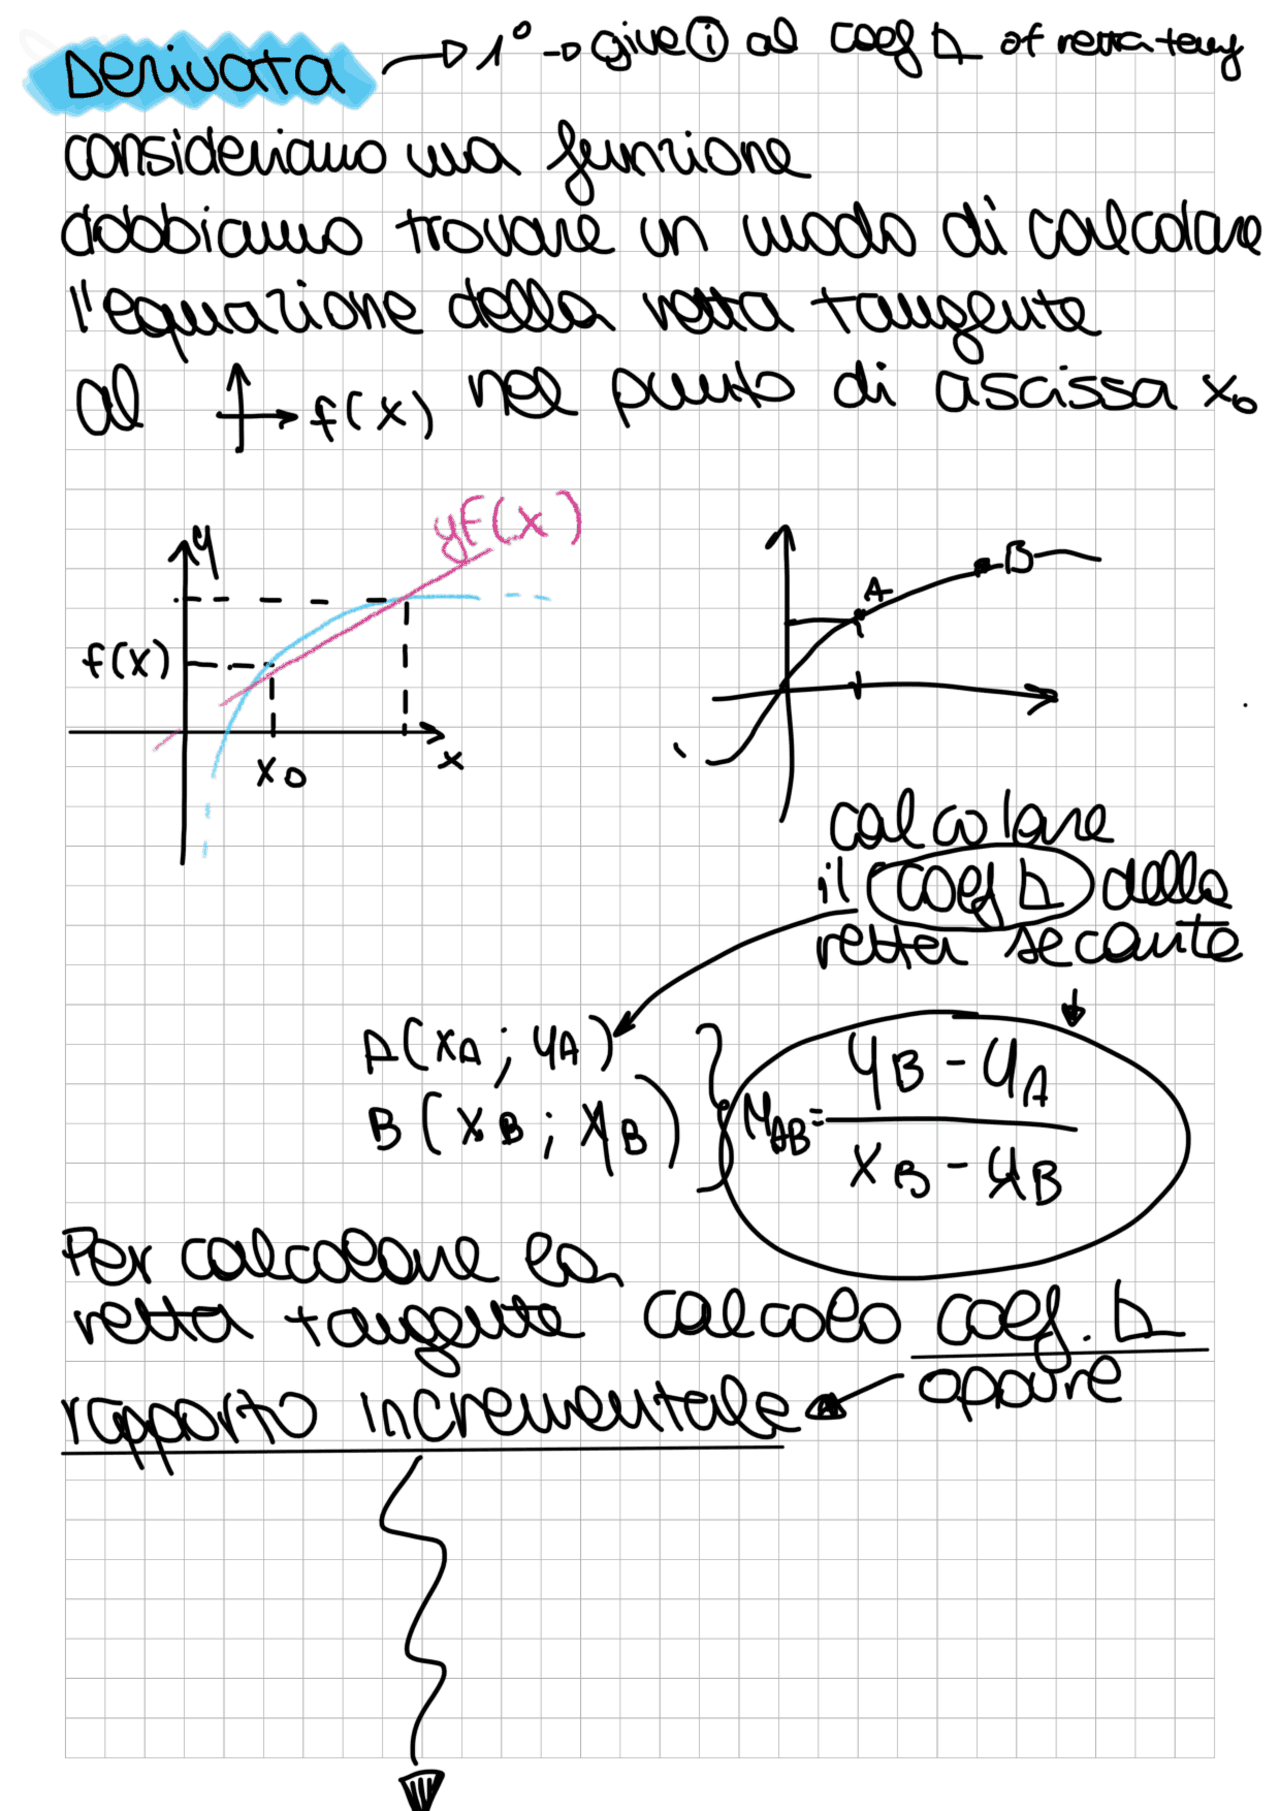 Derivata → 1° → give ⓘ al coef ⊾ of retta tang
consideriamo una funzione
dobbiamo trovare un modo di calcolare
l'equazione della retta tangente
al f(x) nel punto di ascissa x₀
yF(x)
y
B
A
f(x)
x₀
x
calcolare
il coef ⊾ della
retta secante
A(xA ; yA)
B(xB ; yB)
MAB = yB - yA / xB - yB
Per calcolare la
retta tangente calcolo coef. ⊾
oppure
rapporto incrementale